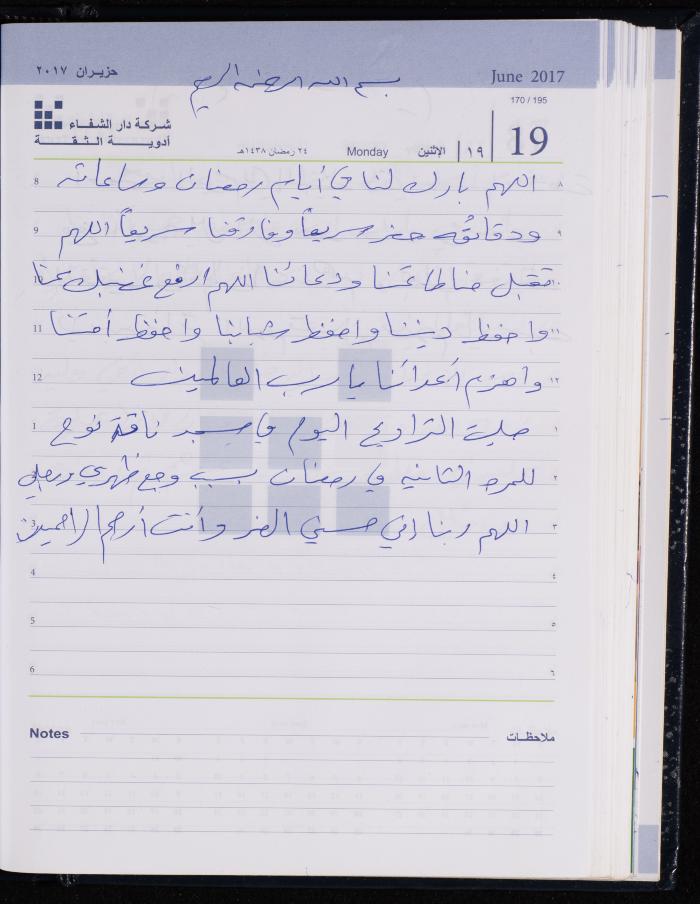 حزيران ٢٠١٧
بسم الله الرحمن الرحيم
June 2017
170 / 195
شركة دار الشفاء
أدوية الثقة
٢٤ رمضان ١٤٣٨هـ
Monday
الإثنين
١٩
19
8 اللهم بارك لنا في أيام رمضان وساعاته ٨
9 ودقائقه حضر سريعاً وفارقنا سريعاً اللهم ٩
10 تقبل منا طاعتنا ودعائنا اللهم ارفع غضبك عنا ١٠
11 واحفظ ديننا واحفظ شبابنا واحفظ أمتنا ١١
12 واهزم أعدائنا يا رب العالمين ١٢
1 صليت التراويح اليوم في مسجد ناقة نوح ١
2 للمرة الثانية في رمضان بسبب وجع ظهري ورجلي ٢
3 اللهم ربنا إني مسني الضر وأنت أرحم الراحمين ٣
4 ٤
5 ٥
6 ٦
Notes ملاحظات